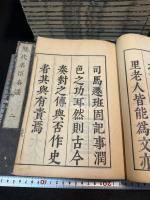 里老人皆能為文亦
司馬遷班固記事潤
色之功耳然則古今
奏對之傳與否作史
者其與有責焉
歷代名臣奏議